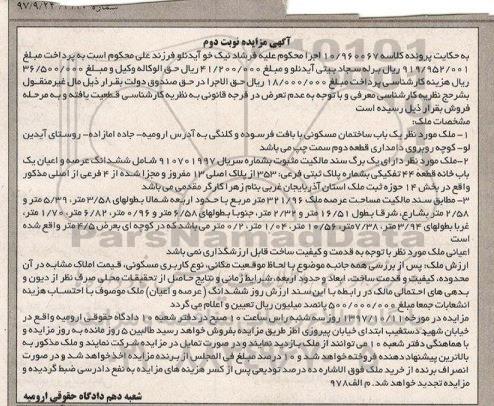 شماره ۹۷/۹/۲۴
آگهی مزایده نوبت دوم
به حکایت پرونده کلاسه ۱۰/۹۶۰۰۶۷ اجرا محکوم علیه فرشاد نیک خو آیدنلو فرزند علی محکوم است به پرداخت مبلغ
۹۱۹/۹۵۲/۰۰۱ ریال برله سجاد بیتی آیدنلو و مبلغ ۴۱/۲۰۰/۰۰۰ ریال حق الوکاله وکیل و مبلغ ۳۶/۵۰۰/۰۰۰
ریال هزینه کارشناسی پرداخت مبلغ ۱۸/۰۰۰/۰۰۰ ریال حق الاجرا در حق صندوق دولت بقرار ذیل مال غیرمنقول
بشرح نظریه کارشناسی معرفی و با توجه به عدم تعرض در فرجه قانونی به نظریه کارشناسی قطعیت یافته و به مرحله
فروش بقرار ذیل رسیده است
مشخصات ملک:
۱- ملک مورد نظر یک باب ساختمان مسکونی با بافت فرسوده و کلنگی به آدرس ارومیه- جاده امازاده- روستای آیدین
لو- کوچه روبروی دامداری قطعه دوم سمت چپ می باشد
۲-ملک مورد نظر دارای یک برگ سند مالکیت مثبوت بشماره سریال ۹۱۰۷۰۱۹۹۷ شامل ششدانگ عرصه و اعیان یک
باب خانه قطعه ۴۴ تفکیکی بشماره پلاک ثبتی فرعی: ۳۵۳ از پلاک اصلی ۱۳ مفروز و مجزا شده از ۴ فرعی از اصلی مذکور
واقع در بخش ۱۴ حوزه ثبت ملک استان آذربایجان غربی بنام زهرا کارگر مقدمی می باشد
۳- مطابق سند مالکیت مساحت عرصه ملک ۳۲۱/۹۶ متر مربع با حدود اربعه شمالا بطولهای ۳/۵۸ متر، ۵/۳۹ متر و
۲/۵۸ متر بشارع، شرقا بطول ۱۶/۵۱ متر و ۲/۳۲ متر، جنوبا بطولهای ۶/۵۸ متر و ۰/۹۶ متر، ۶/۸۲ متر، ۱/۷۰ متر،
غربا بطولهای ۳/۹۴ متر، ۷/۳۸متر، ۱۰/۵۶ متر، ۱/۰۴ متر، ۰/۲ متر می باشد که در کوچه ای بعرض ۴/۵ متر واقع شده
است
اعیانی ملک مورد نظر با توجه به قدمت و کیفیت ساخت قابل ارزشگذاری نمی باشد
ارزش ملک: پس از بررسی همه جانبه موضوع با لحاظ موقعیت مکانی، نوع کاربری مسکونی، قیمت املاک مشابه در آن
محدوده، کیفیت و قدمت ساخت، ابعاد و حدود اربعه، شرایط زمانی و نتایج حاصل از تحقیقات محلی صرف نظر از دیون و
بدهی های احتمالی مالک در رابطه با این سند ارزش روز ششدانگ (عرصه و اعیان) ملک موصوف با احتساب هزینه
انشعابات جمعا مبلغ ۵۰۰/۰۰۰/۰۰۰ پانصد میلیون ریال تعیین و اعلام می گردد
مزایده در مورخه ۱۳۹۷/۱۰/۱۱ روز سه شنبه راس ساعت ۱۰ صبح در دفتر شعبه ۱۰ دادگاه حقوقی ارومیه واقع در
خیابان شهید دستغیب ابتدای خیابان پیروزی آغاز طریق مزایده بفروش خواهد رسید طالبین ۵ روز مانده به روز مزایده و
با هماهنگی دفتر شعبه ۱۰ می توانند از ملک بازدید نمایند و در صورت تمایل در مزایده شرکت نمایند و ملک مذکور به
بالاترین پیشنهاد دهنده فروخته خواهد شد و ۱۰ درصد مبلغ فی المجلس از برنده مزایده اخذ خواهد شد و در صورت
انصراف برنده از خرید ملک فوق الاشاره ده درصد تودیعی پس از کسر هزینه های مزایده به نفع دادرسی ضبط گردیده و
مزایده تجدید خواهد شد. م الف۹۷۸
شعبه دهم دادگاه حقوقی ارومیه